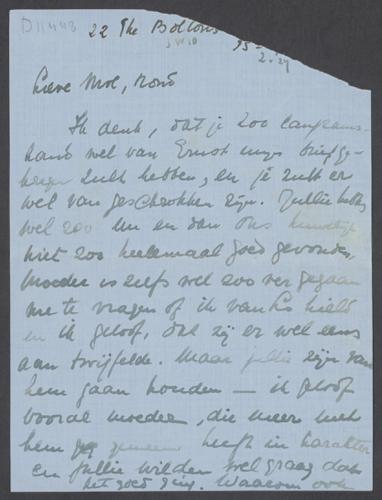 D11448
22 The Boltons
SW 10
Lieve Mol, Mond
Ik denk, dat je zoo langzamer-
hand wel van Ernst mijn brief ge-
kregen zult hebben, en je zult er
wel van geschrokken zijn. Jullie hebben
wel zoo nu en dan ons huwelijk
niet zoo heelemaal goed gevonden,
Moeder is zelfs wel zoo ver gegaan
me te vragen of ik van hield
en ik geloof, dat zij er wel eens
aan twijfelde. Maar jullie zijn van
hem gaan houden — ik geloof
vooral moeder, die meer met
hem gemeen heeft in karakter
en jullie wilden wel graag dat
het goed ging. Waarom ook